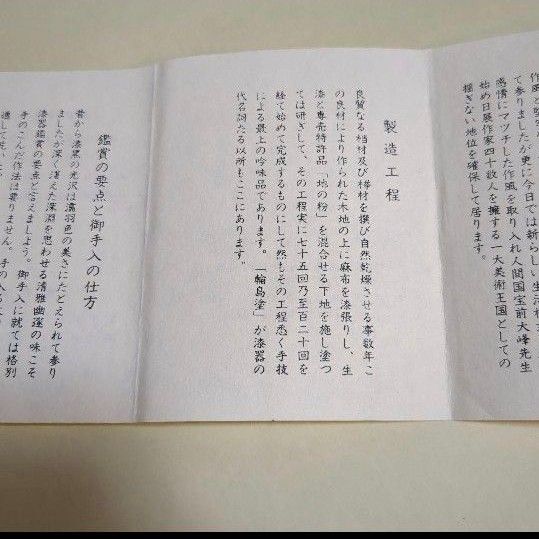 作風と堅
て参りましたが更に今日では新らしい生活様
感情にマツチした作風を取り入れ人間国宝前大峰先生
始め日展作家四十数人を擁する一大美術王国としての
揺ぎない地位を確保して居ります。
製造工程
良質なる档材及び欅材を撰び自然乾燥させる事数年こ
の良材により作られた木地の上に麻布を漆張りし、生
漆と専売特許品「地の粉」を混合せる下地を施し塗つ
ては研ぎして、その工程実に七十五回乃至百二十回を
経て始めて完成するものにして然もその工程悉く手技
による最上の吟味品であります。「輪島塗」が漆器の
代名詞たる所以もここにあります。
鑑賞の要点と御手入の仕方
昔から漆黒の光沢は濡羽色の美さにたとえられて参り
ましたが深く湛えた深淵を思わせる清雅幽邃の味こそ
漆器鑑賞の要点と答えましよう。御手入に就ては格別
手のこんだ作法は要りません。手の